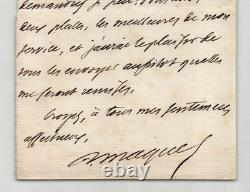 deux places, les meilleures de mon
service, et j'aurai le plaisir de
vous les envoyer aussitôt qu'elles
me seront remises.
Croyez, à tous mes sentiments
affectueux.